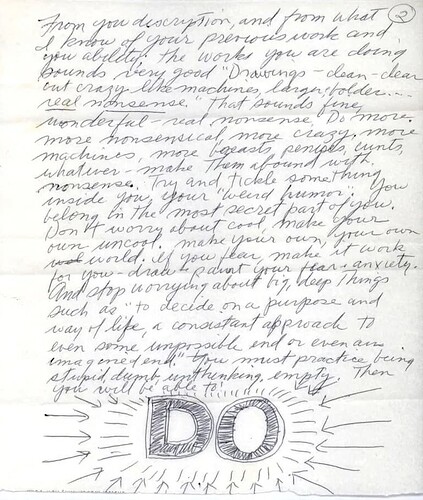 ②
From you discription, and from what
I know of your previous work and
you ability; the works you are doing
sounds very good "Drawings - clean - clear
but crazy like machines, larger, bolder....
real nonsense." That sounds fine,
wonderful - real nonsense. Do more.
more nonsensical, more crazy, more
machines, more breasts, penises, cunts,
whatever - make them abound with
nonsense. Try and tickle something
inside you, your "weird humor." You
belong in the most secret part of you.
Don't worry about cool, make your
own uncool. make your own, your own
world. If you fear, make it work
for you - draw & paint your fear & anxiety.
And stop worrying about big, deep things
such as "to decide on a purpose and
way of life, a consistant approach to
even some impossible end or even an
imagined end." You must practice being
stupid, dumb, unthinking, empty. Then
you will be able to:
DO